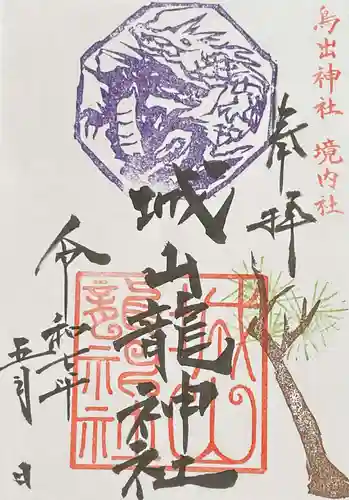 鳥出神社 境内社
奉拝
城山龍神社
令和七年
五月 日